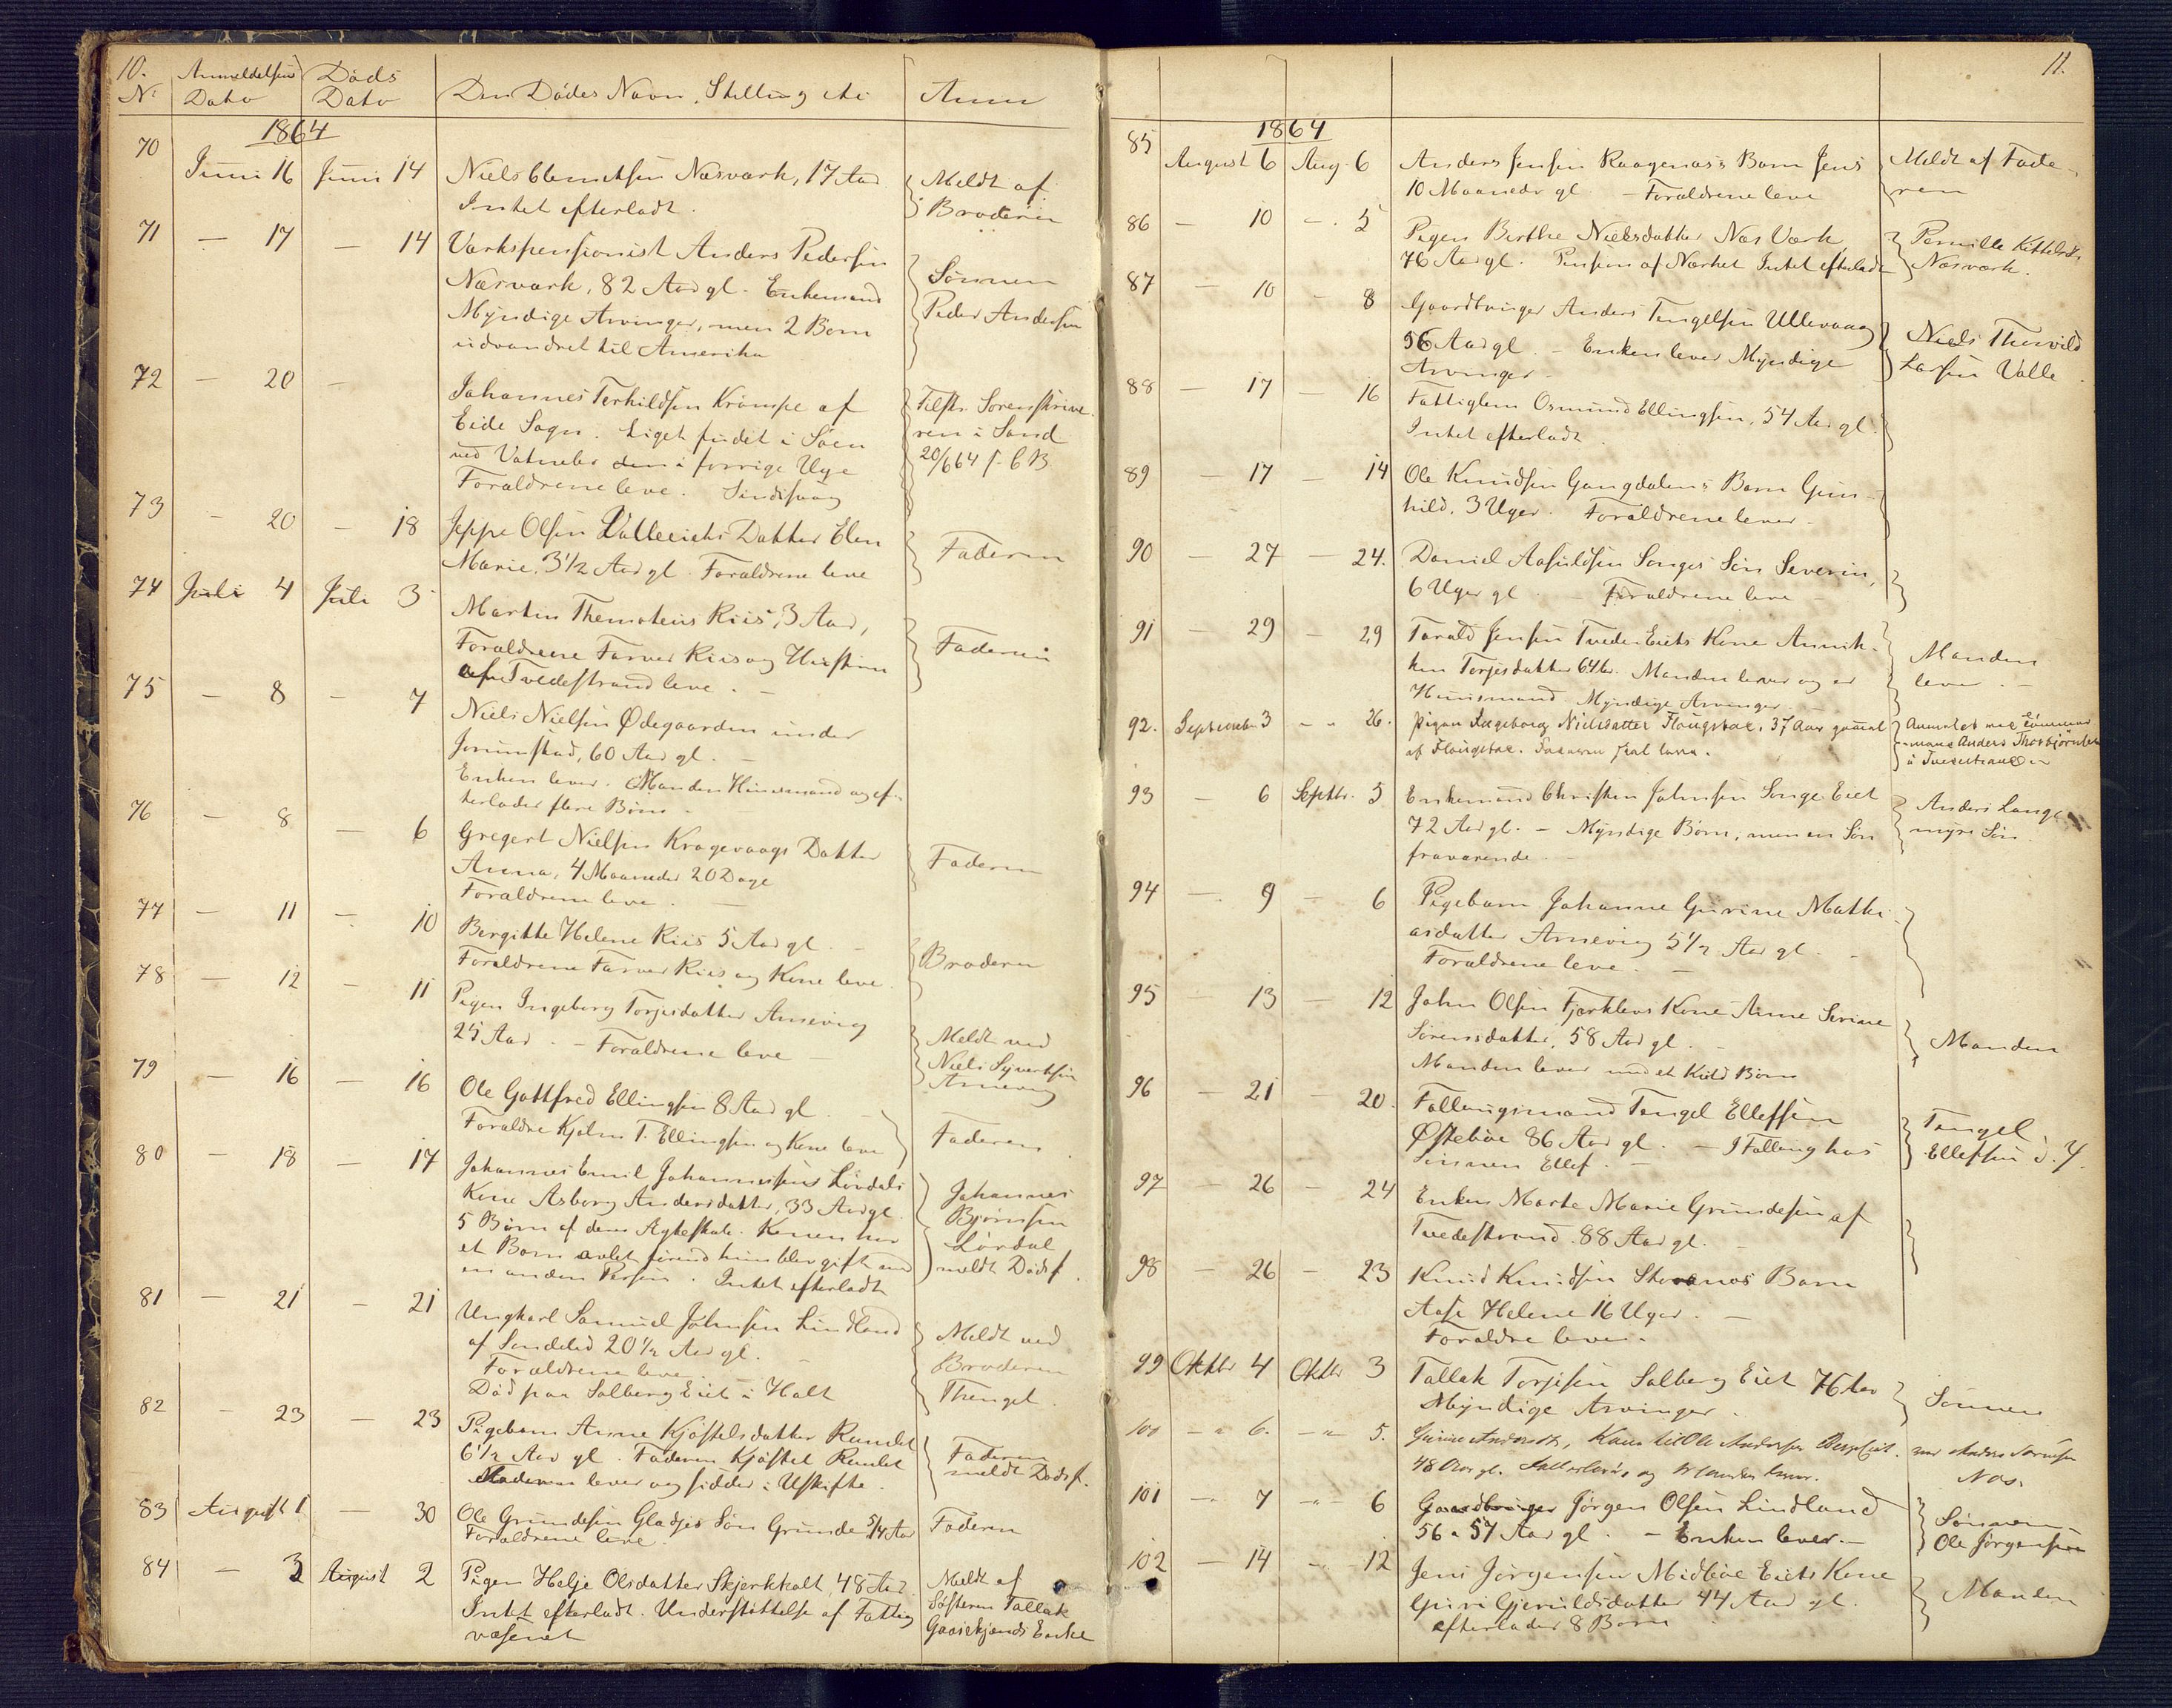 10.
No Anmeldelsens Dato Døds Dato Den Dødes Navn, Stilling etc Anm
1864
70 Juni 16 Juni 14 Niels Clemetsen Næsværk, 17 Aar Meldt af
Intet efterladt. Broderen
71 — 17 — 14 Værkspensionist Anders Pedersen
Næsværk, 82 Aar gl. Enkemand Sønnen
Myndige Arvinger, men 2 Børn Peder Andersen
udvandret til Amerika
72 — 20 —
Johannes Terkildsen Krömpe af Tilstr. Sorenskrive-
Eide Sogn. Liget fundet i Søen ren i Sand
ved Vatnebo den i forrige Uge 20/6 64 f. C B
Forældrene leve.
73 — 20 — 18 Jeppe Olsen Datter Elen
Marie, 3 1/2 Aar gl. Forældrene leve Faderen
74 Juli 4 Juli 3
Martin Themoteus Riis, 3 Aar,
Forældrene Farver Riis og Hustru Faderen
af Tvedestrand leve. —
75 — 8 — 7
Niels Nielsen Ødegaarden under
Jorunstad, 60 Aar gl. —
Enken lever. Manden Huusmand og ef-
terlader flere Børn
76 — 8 — 6
Gregert Nielsen Kragevaags Datter
Anna, 4 Maaneder 20 Dage Faderen
Forældrene leve. —
77 — 11 — 10 Bergitte Helene Riis 5 Aar gl. —
Forældrene Farver Riis og Kone leve. Broderen
78 — 12 — 11 Pigen Ingeborg Torjesdatter Amevig
25 Aar. — Forældrene leve — Meldt ved
Niels Syvertsen
Amevig
79 — 16 — 16 Ole Gottfred Ellingsen 8 Aar gl. —
Forældre Kjøbm T. Ellingsen og Kone leve Faderen
80 — 18 — 17 Johannes Emil Johannesens Lövdals
Kone Asborg Andersdatter, 33 Aar gl. Johannes
5 Børn af dem Ægteskab. Konen har Bjørnsen
et Barn avlet førend hun blev gift med Lövdal
en anden Person. Intet efterladt meldt Dødsf.
81 — 21 — 21 Ungkarl Samuel Johnsen Lindland
af Søndeled 20 1/2 Aar gl. Meldt ved
Forældrene leve. — Broderen
Död paa Solberg Eiet i Holt Thengel.
82 — 23 — 23 Pigebarn Anne Kjøstelsdatter Ramlet
6 1/2 Aar gl. Faderen Kjøstel Ramlet Faderen
lever og sidder i Uskifte. meldt Dødsf.
83 August 1 — 30 Ole Grundesen Gladjes Søn Grunde 5/4 Aar Faderen
Forældrene leve.
84 — 3 August 2 Pigen Helje Olsdatter Skjerkholt, 48 Aar. Meldt af
Intet efterladt. Understøttelse af Fattig Søsteren Tallak
væsenet Enke
11.
1864
85 August 6 Aug. 6 Anders Jensen Raagenæs's Barn Jens Meldt af Fade-
10 Maaneder gl — Forældrene leve ren
86 — 10 — 5 Pigen Berthe Nielsdatter Næs Værk Pernille Kittelsdr
76 Aar gl. Pension af Værket Intet efterladt Næsværk.
87 — 10 — 8 Gaardbruger Anders Tengelsen Ullevaag
56 Aar gl. — Enken lever Myndige Niels Thervild
Arvinger. — Larsen Valle
88 — 17 — 16 Fattiglem Osmund Ellingsen, 54 Aar gl.
Intet efterladt.
89 — 17 — 14 Ole Knudsen Gangdalens Barn Gun-
hild, 3 Uger. Forældrene lever —
90 — 27 — 24. Daniel Aasuldsen Songes Søn Severin,
6 Uger gl. — Forældrene leve —
91 — 29 — 29 Tarald Jensen Tveden Eiets Kone Annik-
ken Torjesdatter 64 Aar. Manden lever og er Manden
Huusmand Myndige Arvinger. lever. —
92. September 3 — 26. Pigen Ingeborg Nielsdatter Flaugstae, 37 Aar gammel Anmeldt ved Tømmer
af Flaugstae. Faderen skal leve. mand Anders Thorbjörnsen
i Tvedestrand
93 — 6 Septbr. 5 Enkemand Christen Johnsen Songe Eiet Anders Lang-
72 Aar gl. — Myndige Børn, men en Søn myrs Søn.
fraværende. —
94 — 9 — 6 Pigebarn Johanne Gurine Mathi-
asdatter Amevig 5 1/2 Aar gl. —
Forældrene leve. —
95 — 13 — 12 John Olsen Fjærklevs Kone Anne Serine
Sørensdatter, 58 Aar gl. — Manden
Manden lever med et Kuld Børn
96 — 21 — 20. Follaugsmand Tengel Ellefsen Tengel
Østebøe 86 Aar gl. — I Follaug hos Ellefsen d. Y.
Sønnen Ellef. —
97 — 26 — 24 Enken Marte Marie Grundesen af
Tvedestrand. 88 Aar gl. —
98 — 26 — 23 Knud Knudsen Barn
Aase Helene 16 Uger. —
Forældre leve. —
99 Oktbr 4 Oktbr 3 Tallak Torjesen Solberg Eiet 76 Aar Sønnen
Myndige Arvinger.
100 — 6. — 5. Gurine Andersdtr, Kone til Ole Andersen ved Anders Sørensen
48 Aar gl. og Manden lever. Næs.
101 — 7 — 6 Gaardbruger Jørgen Olsen Lindland Sønnen
56 a 57 Aar gl. — Enken lever. — Ole Jørgensen
102 — 14 — 12 Jens Jørgensen Midbøe Eiets Kone
Guri Gjeruldsdatter 44 Aar gl. Manden
efterlader 8 Børn